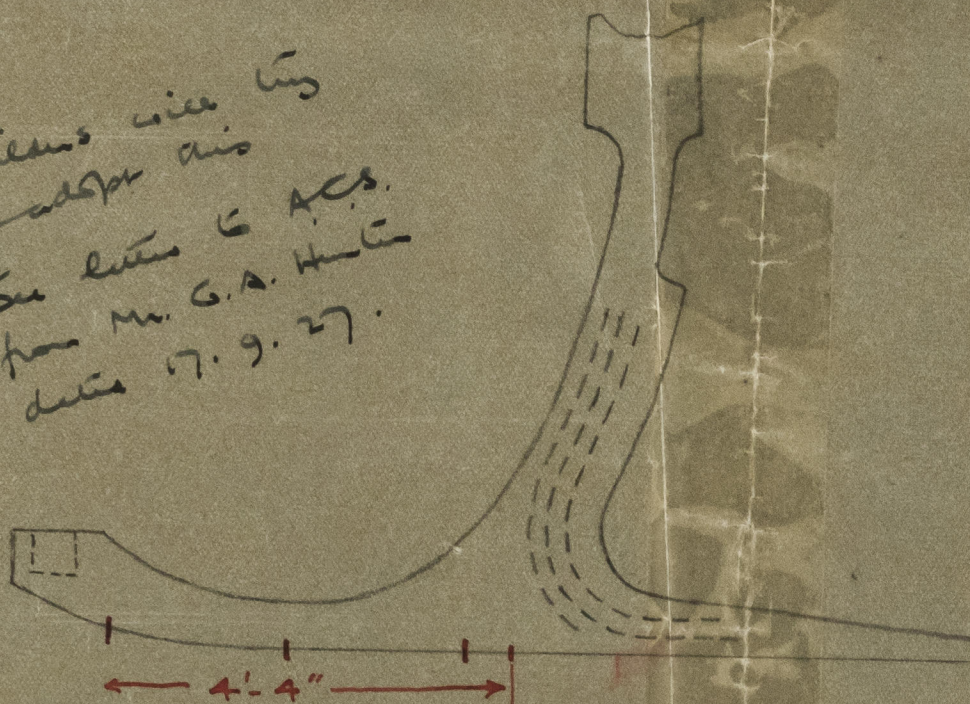 will try
adopt this
See letter to A.C.S.
from Mr. G.A. Hunter
dated 17. 9. 27.
4'- 4"